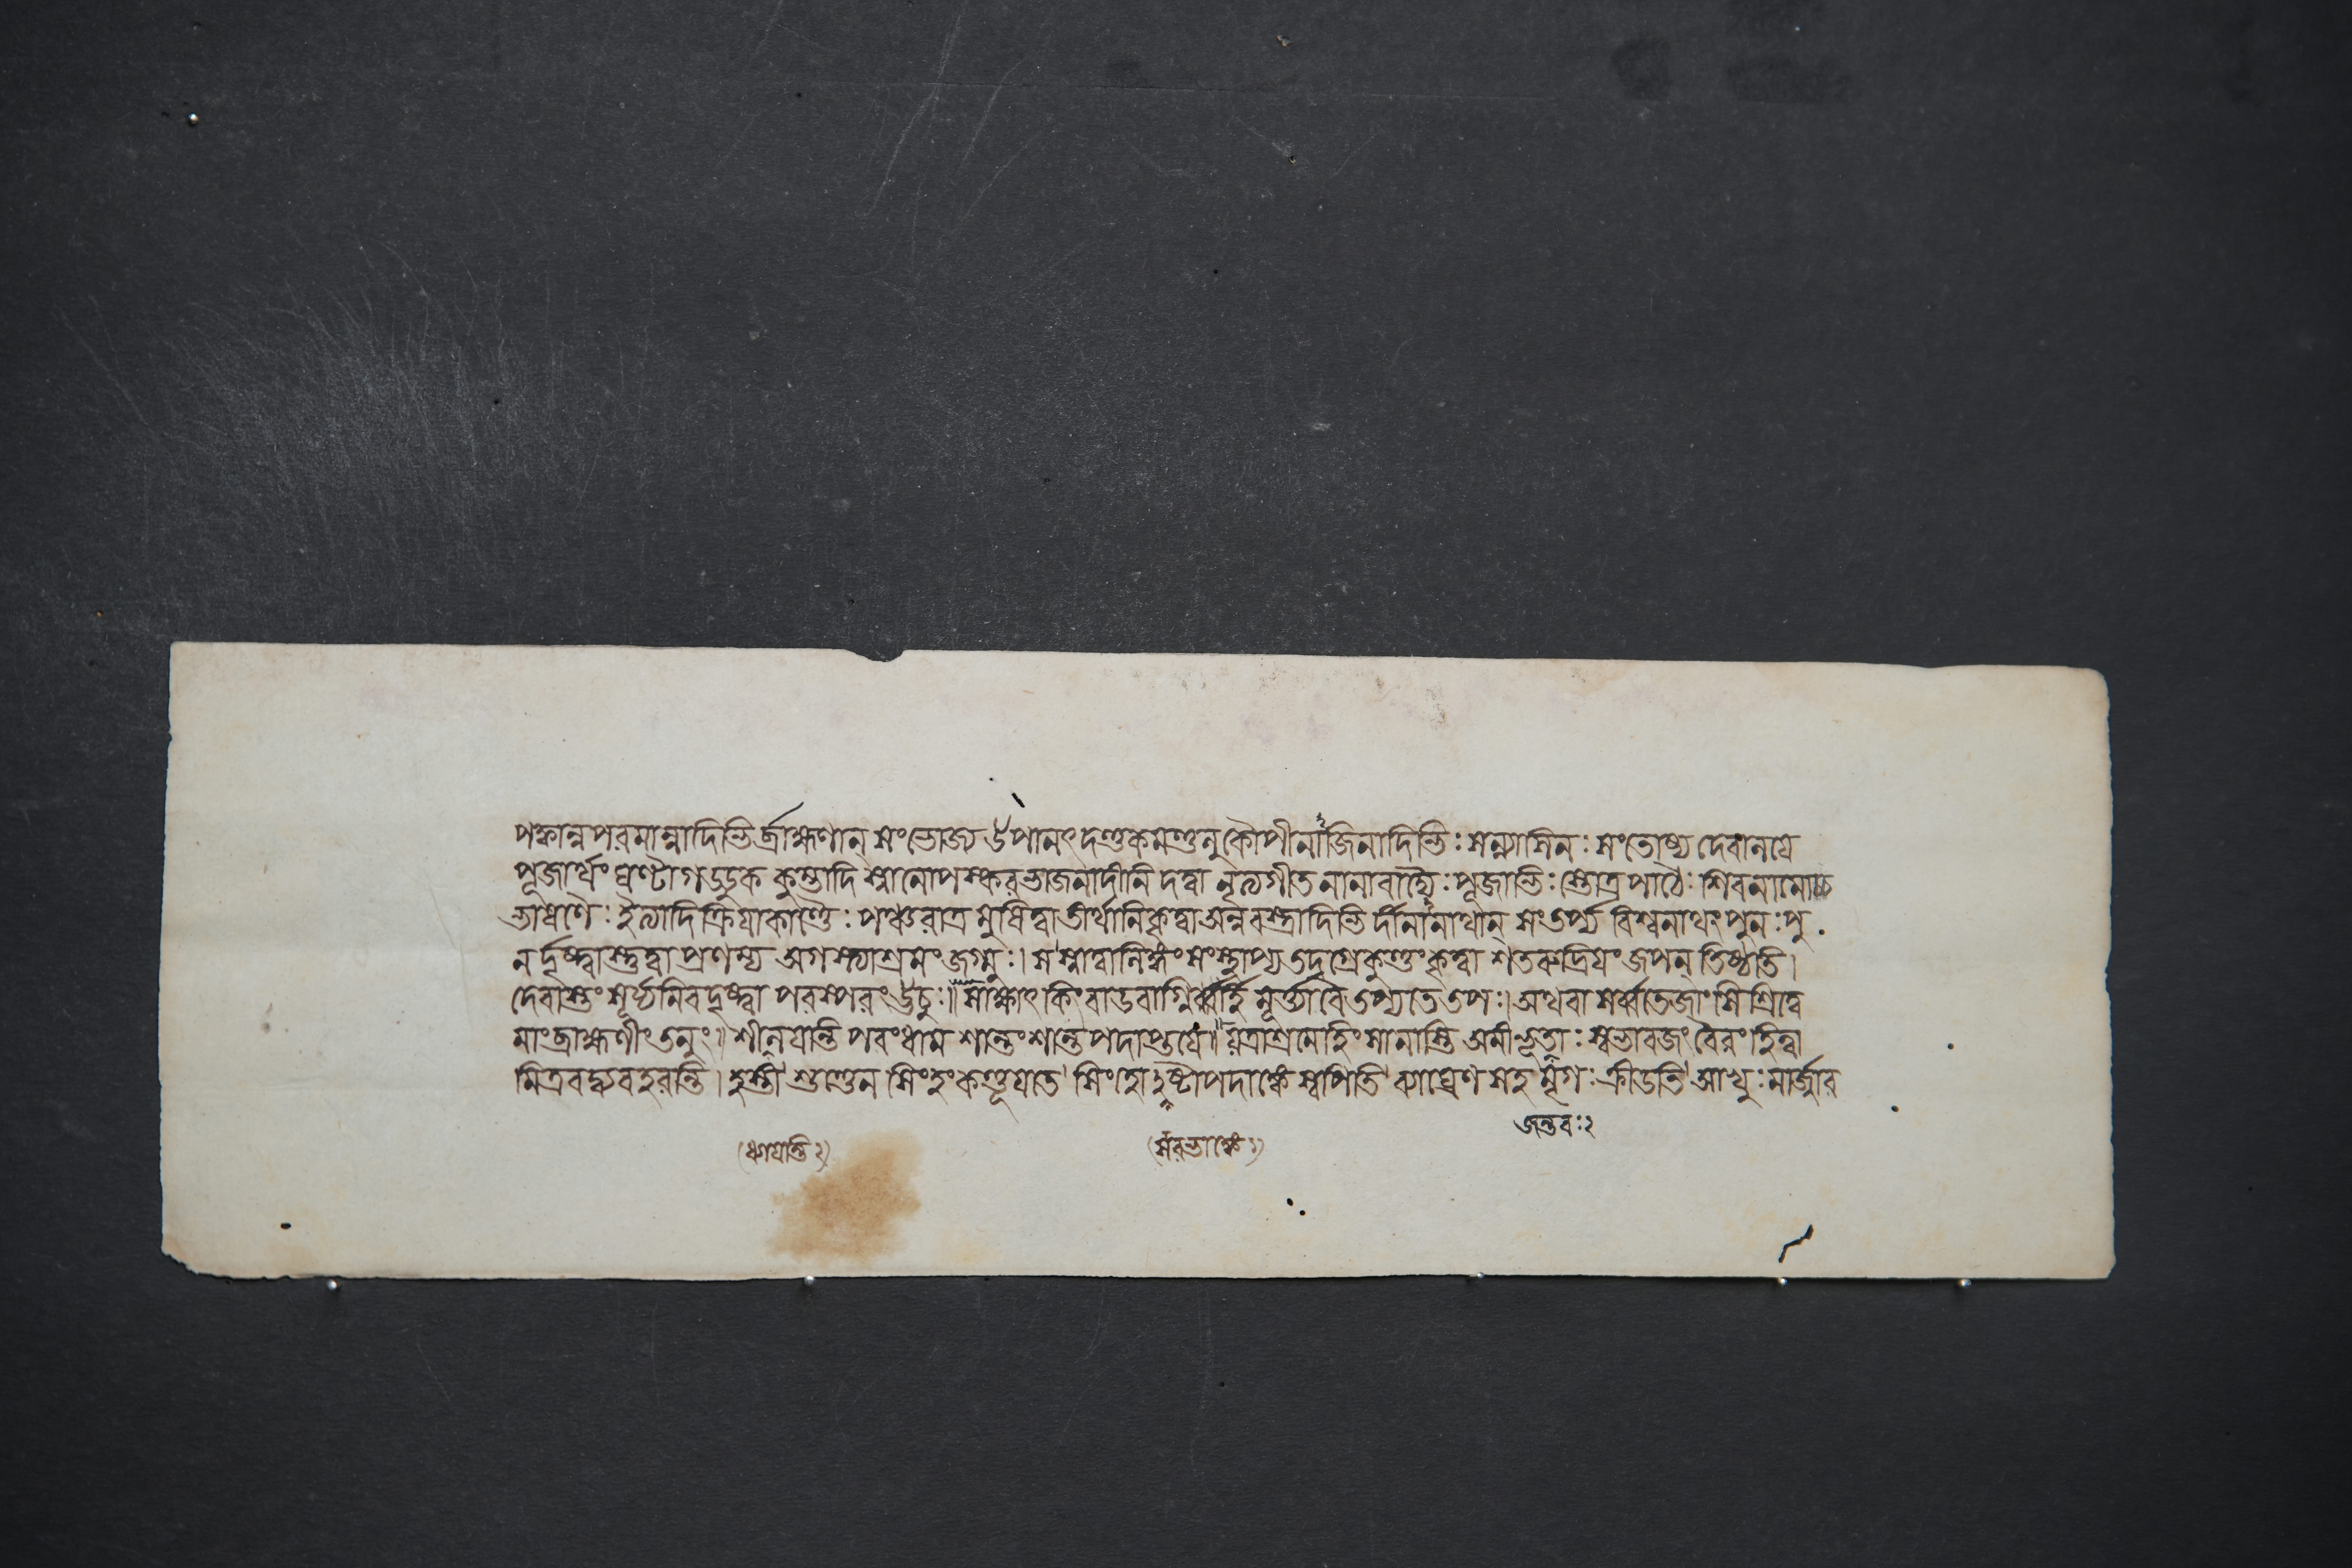 পক্বান্নপরমান্নাদিভির্ব্রাহ্মণান্ সংভোজ্য উপানৎ দণ্ডকমণ্ডলু কৌপীনাজিনাদিভিঃ সন্ন্যাসিনঃ সংতোষ্য দেবালয়ে
পূজার্থং ঘণ্টাগডডুক কুম্ভাদি স্নানোপস্করভাজনাদীনি দত্বা নৃত্যগীত নানাবাদ্যৈঃ পূজাভিঃ স্তোত্রপাঠৈঃ শিবনামো
ভাষণৈঃ ইত্যাদিক্রিয়াকাণ্ডৈঃ পঞ্চরাত্র মুষিত্বা তীর্থানিকৃত্বা অন্নবস্ত্রাদিভি র্দীনানাথান্ সংতর্প্য বিশ্বনাথং পুনঃ পু
নর্দৃষ্ট্বা স্তুত্বা প্রণম্য অগস্ত্যাশ্রমং জগ্মুঃ। স স্বনাম্না লিঙ্গং সংস্থাপ্য তদগ্রে কুণ্ডং কৃত্বা শতরুদ্রিয়ং জপন্ তিষ্ঠতি।
দেবাস্তং সূর্য্যমিবদৃষ্ট্বা পরস্পরং ঊচুঃ॥ সাক্ষাৎ কিং বাডবাগ্নির্ব্বা মূর্ত্ত্যা বৈ তপ্যতে তপঃ। অথবা সর্ব্বতেজাংসি শ্রিত্বে
মাং ব্রাহ্মণীং তনুং॥ লীনয়ন্তি পরংধাম শান্তং শান্তপদাপ্তয়ে॥ যত্রাশ্রমে হিংসা নাস্তি অমী ভূতাঃ স্বভাবজং বৈরং হিত্বা
মিত্রবদ্ব্যবহরন্তি। হস্তী শুণ্ডেন সিংহং কণ্ডূয়তে সিংহো অষ্টাপদাঙ্কে স্বপিতি ব্যাঘ্রেণ সহ মৃগঃ ক্রীডতি আখুঃ মার্জার
জন্তবঃ২
(ধ্যায়ন্তি২)
(সরভাঙ্কে২)